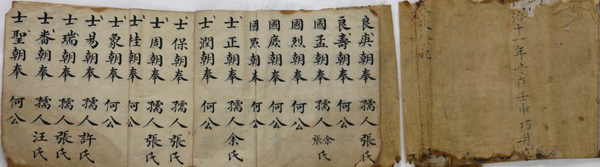 治十一年歲在壬申巧月
良朝奉 孺人張氏
良壽朝奉 何公
國孟朝奉 孺人余張氏
國烈朝奉 何公
國朝奉 何公
國朝奉 何公
士正朝奉 孺人余氏
士潤朝奉 何公
士保朝奉 孺人張氏
士周朝奉 孺人張氏
士桂朝奉 何公
士象朝奉 何公
士易朝奉 孺人許氏
士瑞朝奉 孺人張氏
士番朝奉 孺人汪氏
士聖朝奉 何公